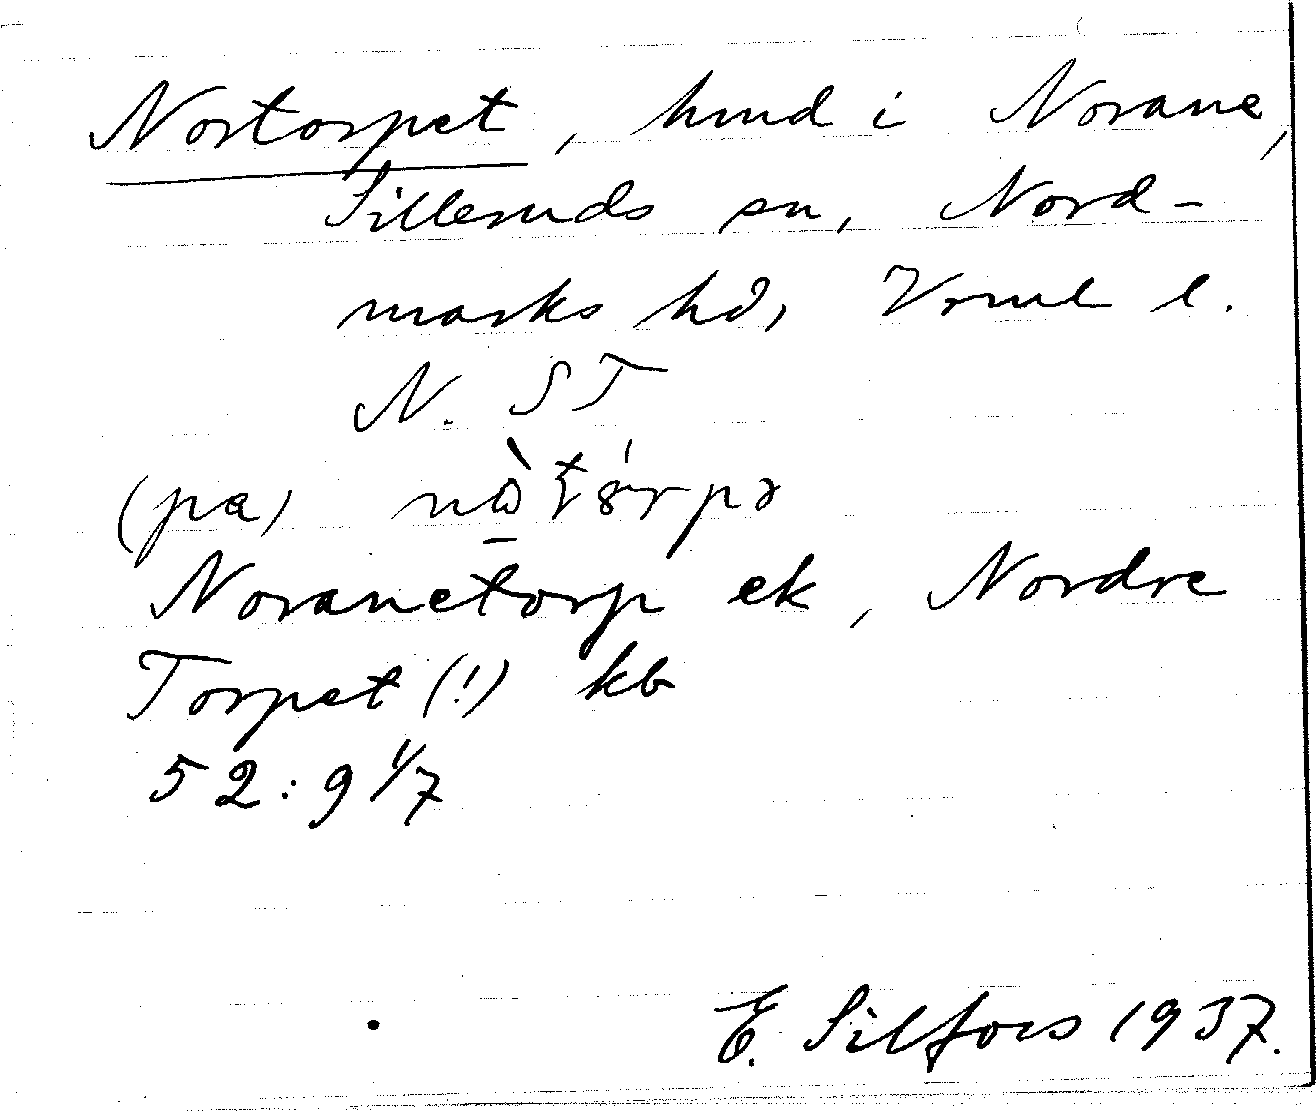 Nortorpet, hmd i Norane,
Silleruds sn, Nord-
marks hd, Vrml l.
N. ST
(pa)
Noranetorp ek, Nordre
Torpet (!) kb
52:9 1/7
E. Silfors 1937.